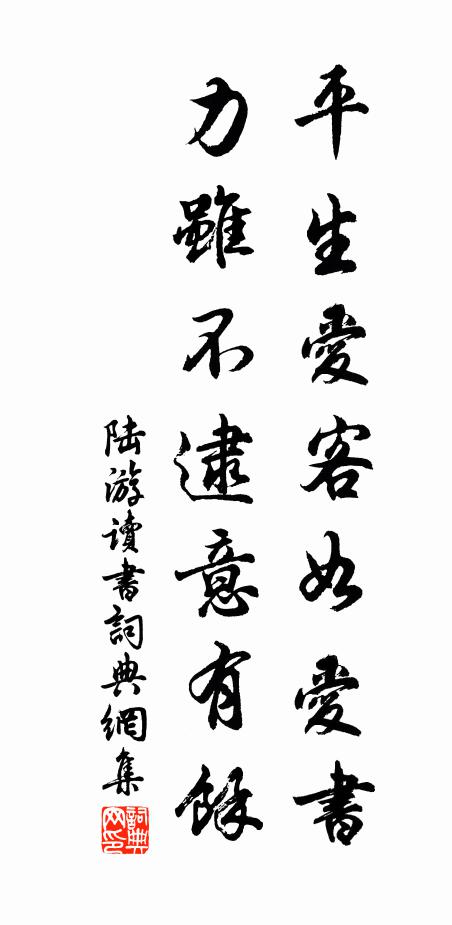 平生愛客如愛書
力雖不逮意有餘
陆游讀書詞典網集
詞典网印